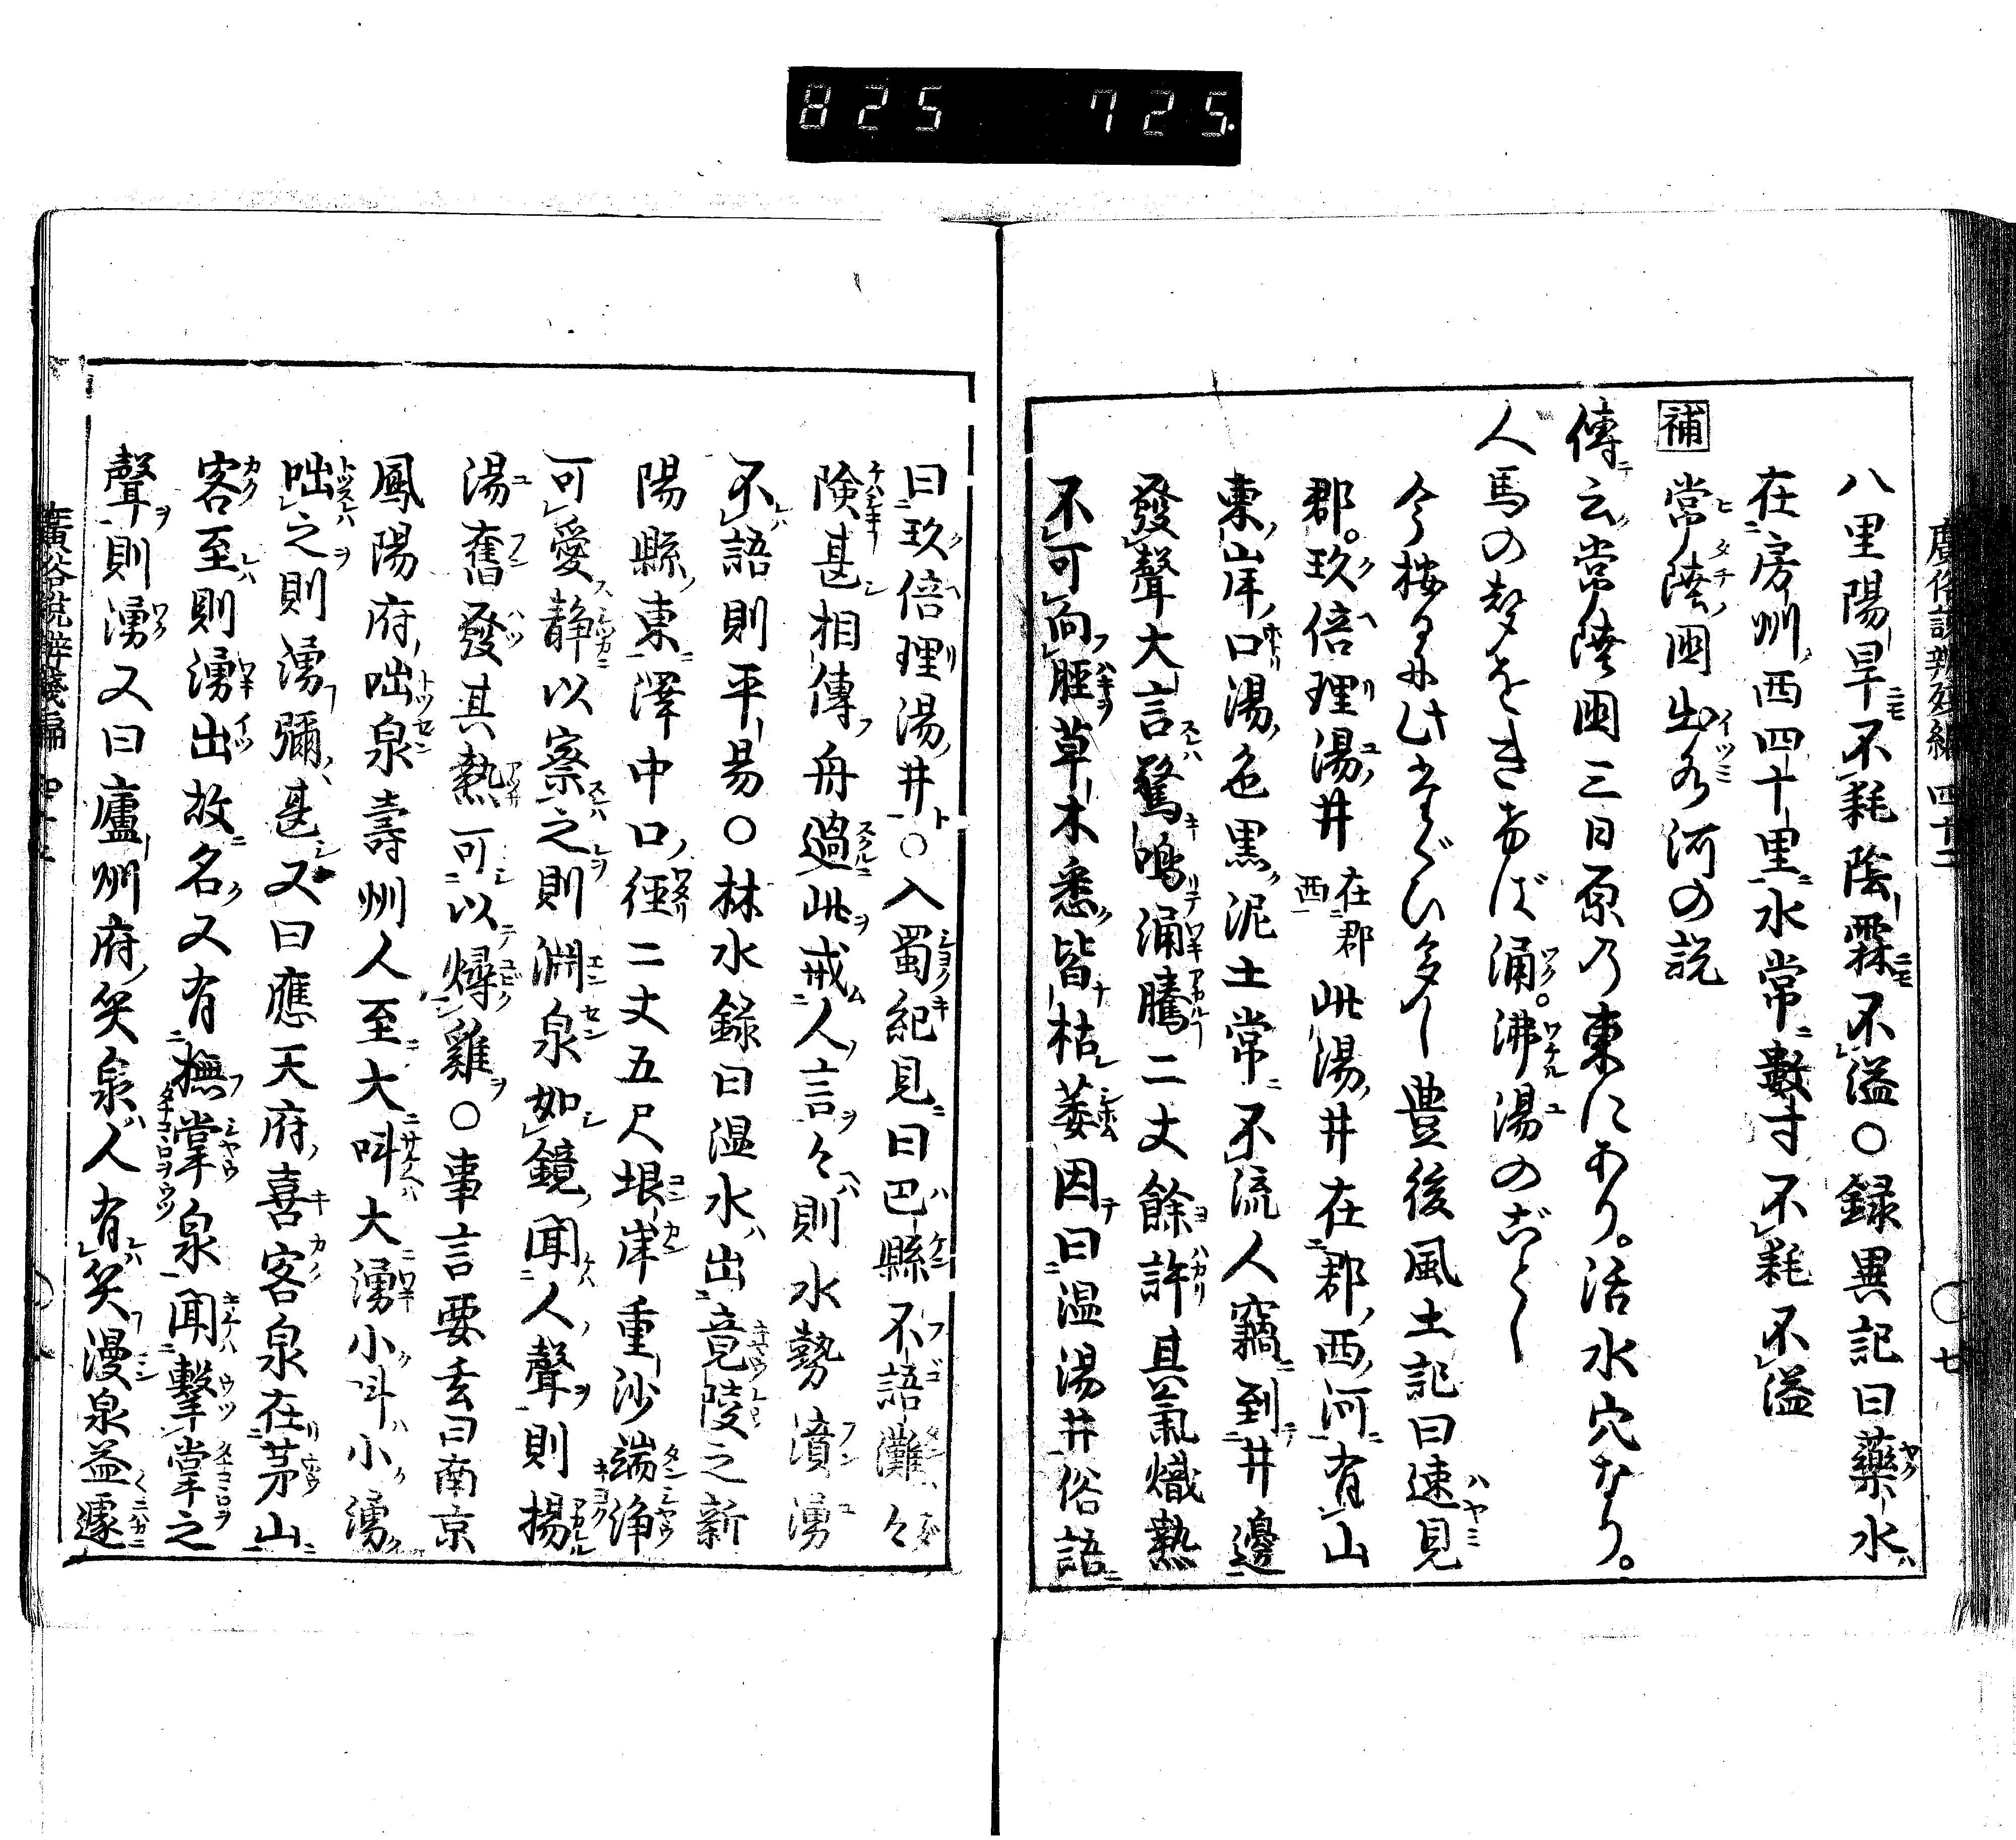 825 725.
廣俗説辨殘編 四十二 〇 廿
八里陽旱不耗陰霖不溢〇録異記曰藥水
在房州西四十里水常數寸不耗不溢
補 常陸國出水河の説
傳云常陸國三日原乃東にあり。活水穴なり。
人馬の聲をきけば涌。沸湯のごとし
今按るに此たぐひ多し豊後風土記曰速見
郡。玖倍理湯井 在郡西 此湯井在郡西河有山
東岸口湯色黒泥土常不流人竊到井邊
發聲大言驚鳴涌騰二丈餘許其氣熾熱
不可向腥草木悉皆枯萎因曰温湯井俗語
曰玖倍理湯井〇入蜀紀見曰巴縣不語灘々
険甚相傳舟過此戒人言々則水勢濆湧
不語則平易〇林水録曰温水出竟陵之新
陽縣東澤中口徑二丈五尺垠岸重沙端浄
可愛静以察之則淵泉如鏡聞人聲則揚
湯奮發其熱可以燖雞〇事言要玄曰南京
鳳陽府咄泉壽州人至大叫大湧小叫小湧
咄之則湧彌甚又曰應天府喜客泉在茅山
客至則湧出故名又有撫掌泉聞擊掌之
聲則湧又曰廬州府笑泉人有笑漫泉益遽